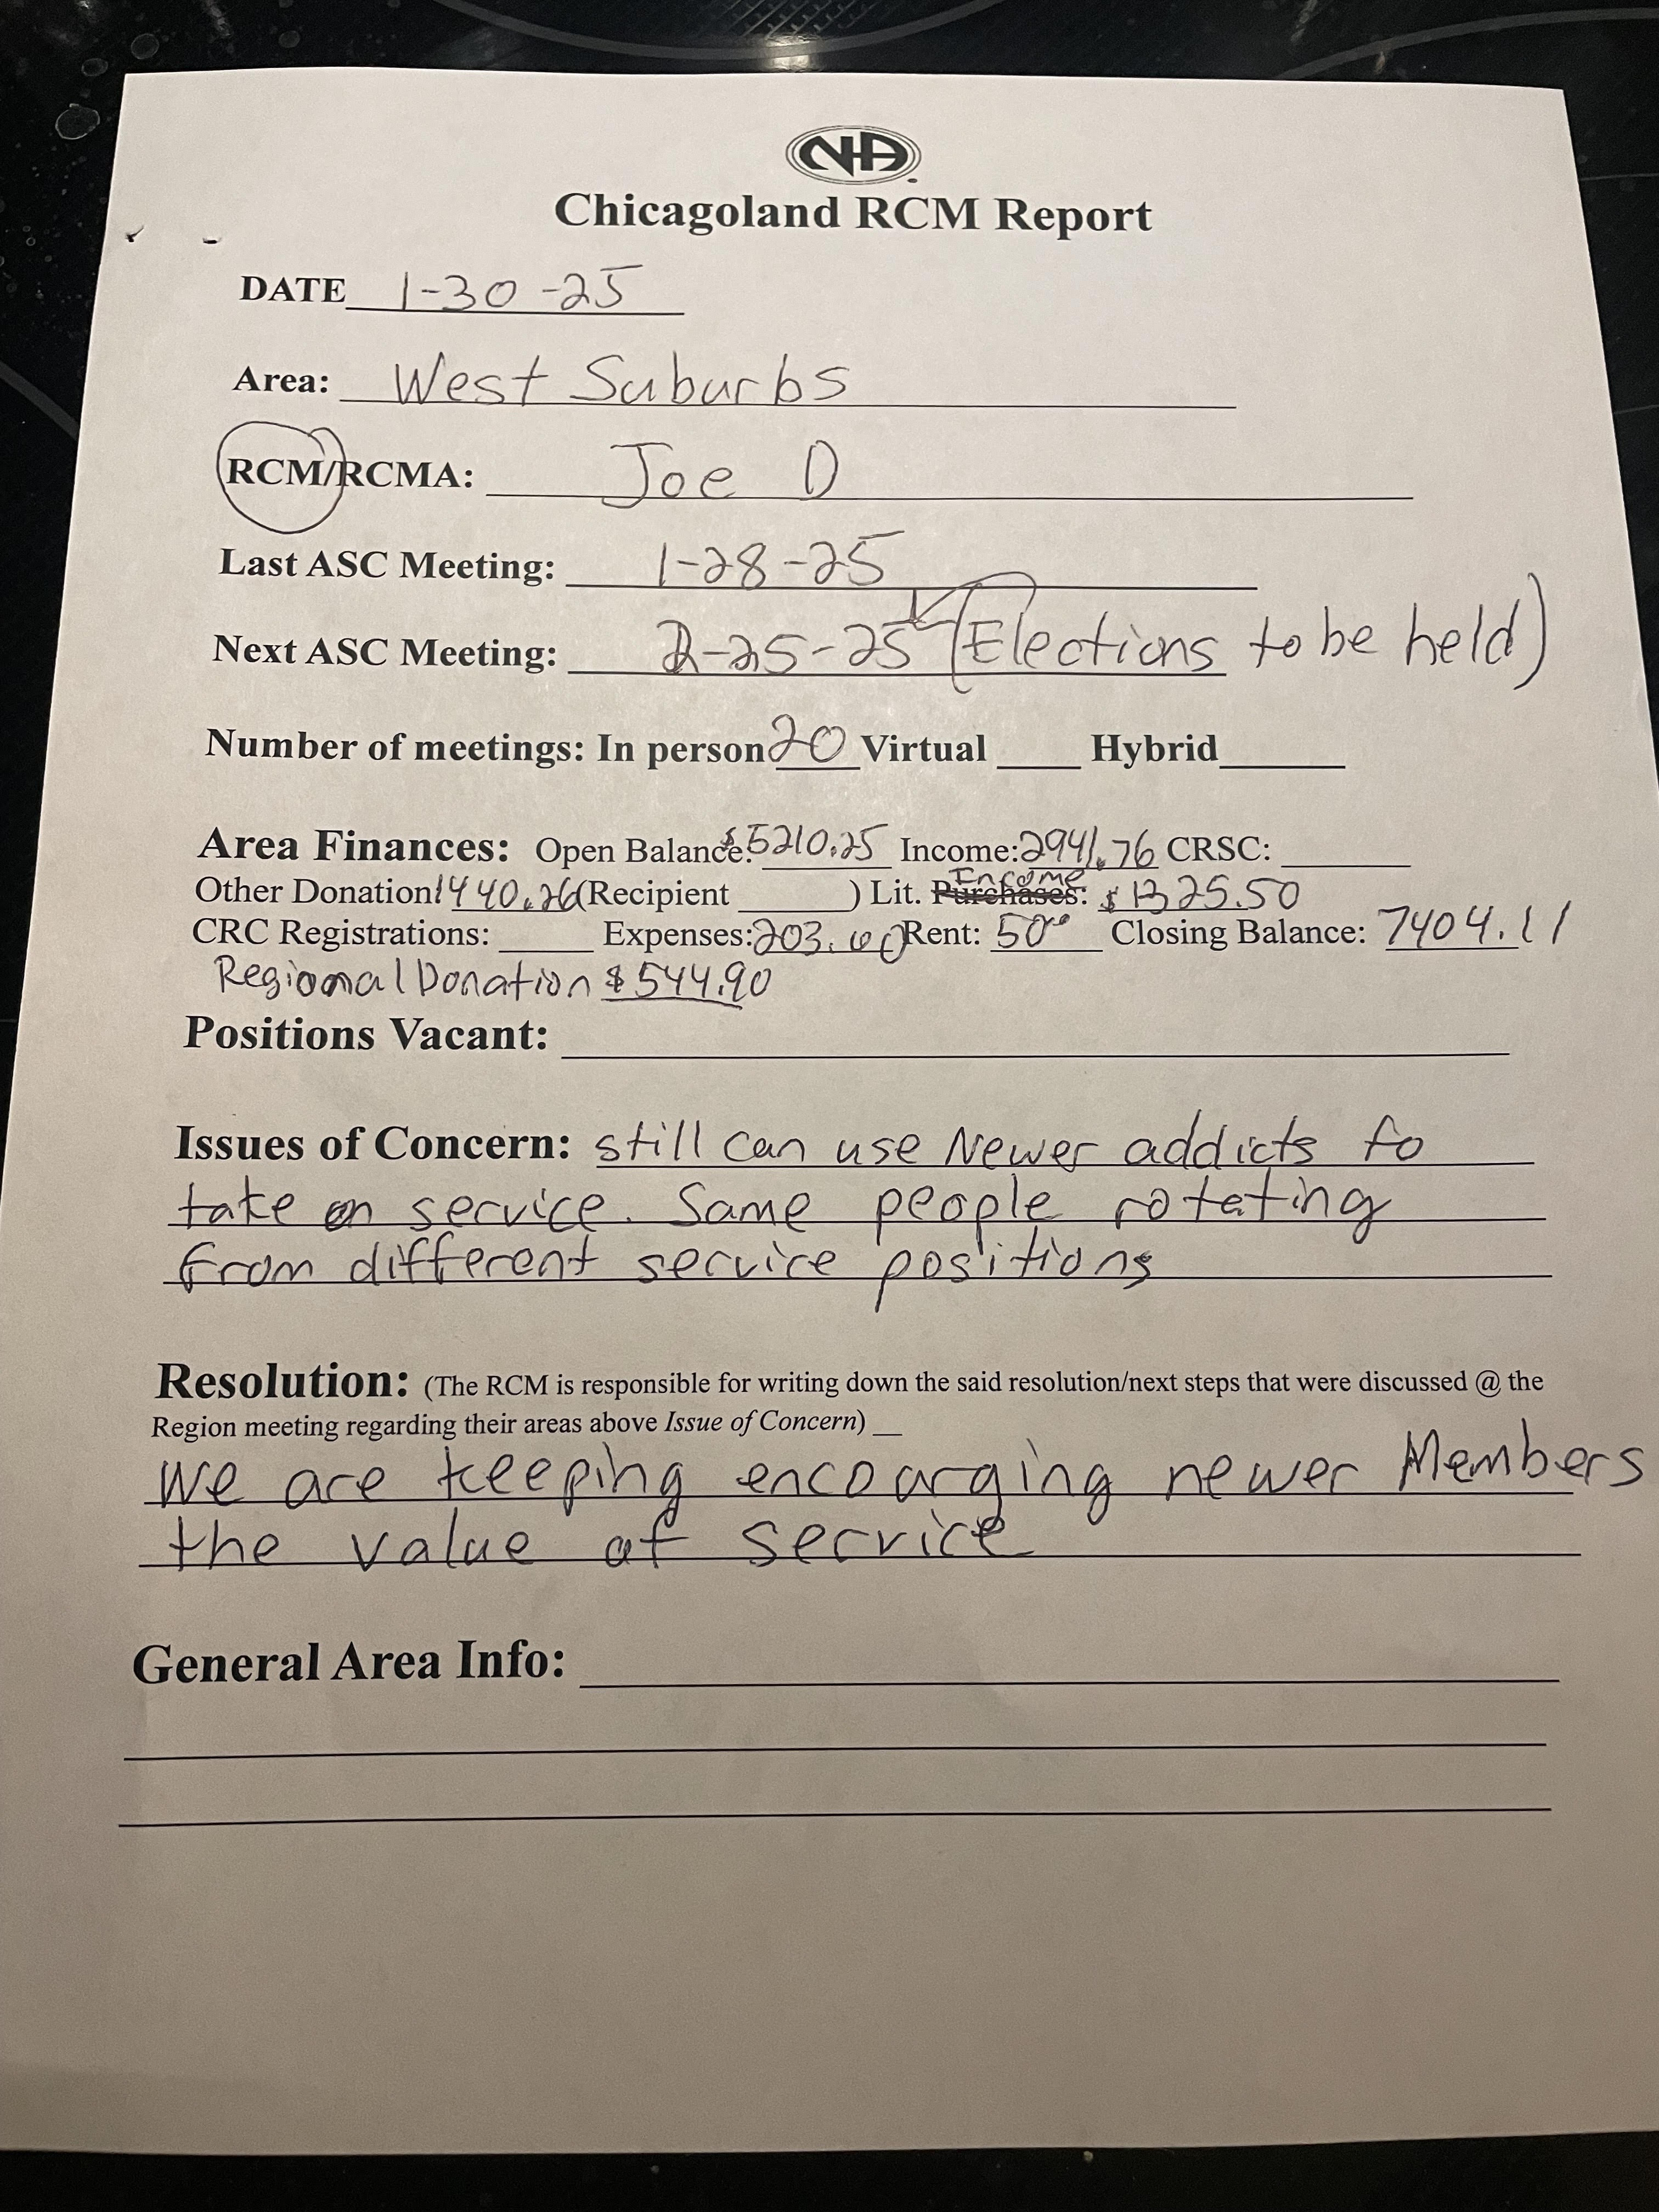 NA
Chicagoland RCM Report
DATE 1-30-25
Area: West Suburbs
RCM/RCMA: Joe D
Last ASC Meeting: 1-28-25
Next ASC Meeting: 2-25-25 (Elections to be held)
Number of meetings: In person 20 Virtual ____ Hybrid ______
Area Finances: Open Balance: $5210.25 Income: 2941.76 CRSC: ______
Income
Other Donation 1440.26 (Recipient ______) Lit. Purchases: $1325.50
CRC Registrations: _____ Expenses: 203.00 Rent: 50.00 Closing Balance: 7404.11
Regional Donation $544.90
Positions Vacant:
Issues of Concern: still can use Newer addicts to
take on service. Same people rotating
from different service positions
Resolution: (The RCM is responsible for writing down the said resolution/next steps that were discussed @ the
Region meeting regarding their areas above Issue of Concern) __
We are keeping encoarging newer Members
the value of service
General Area Info: